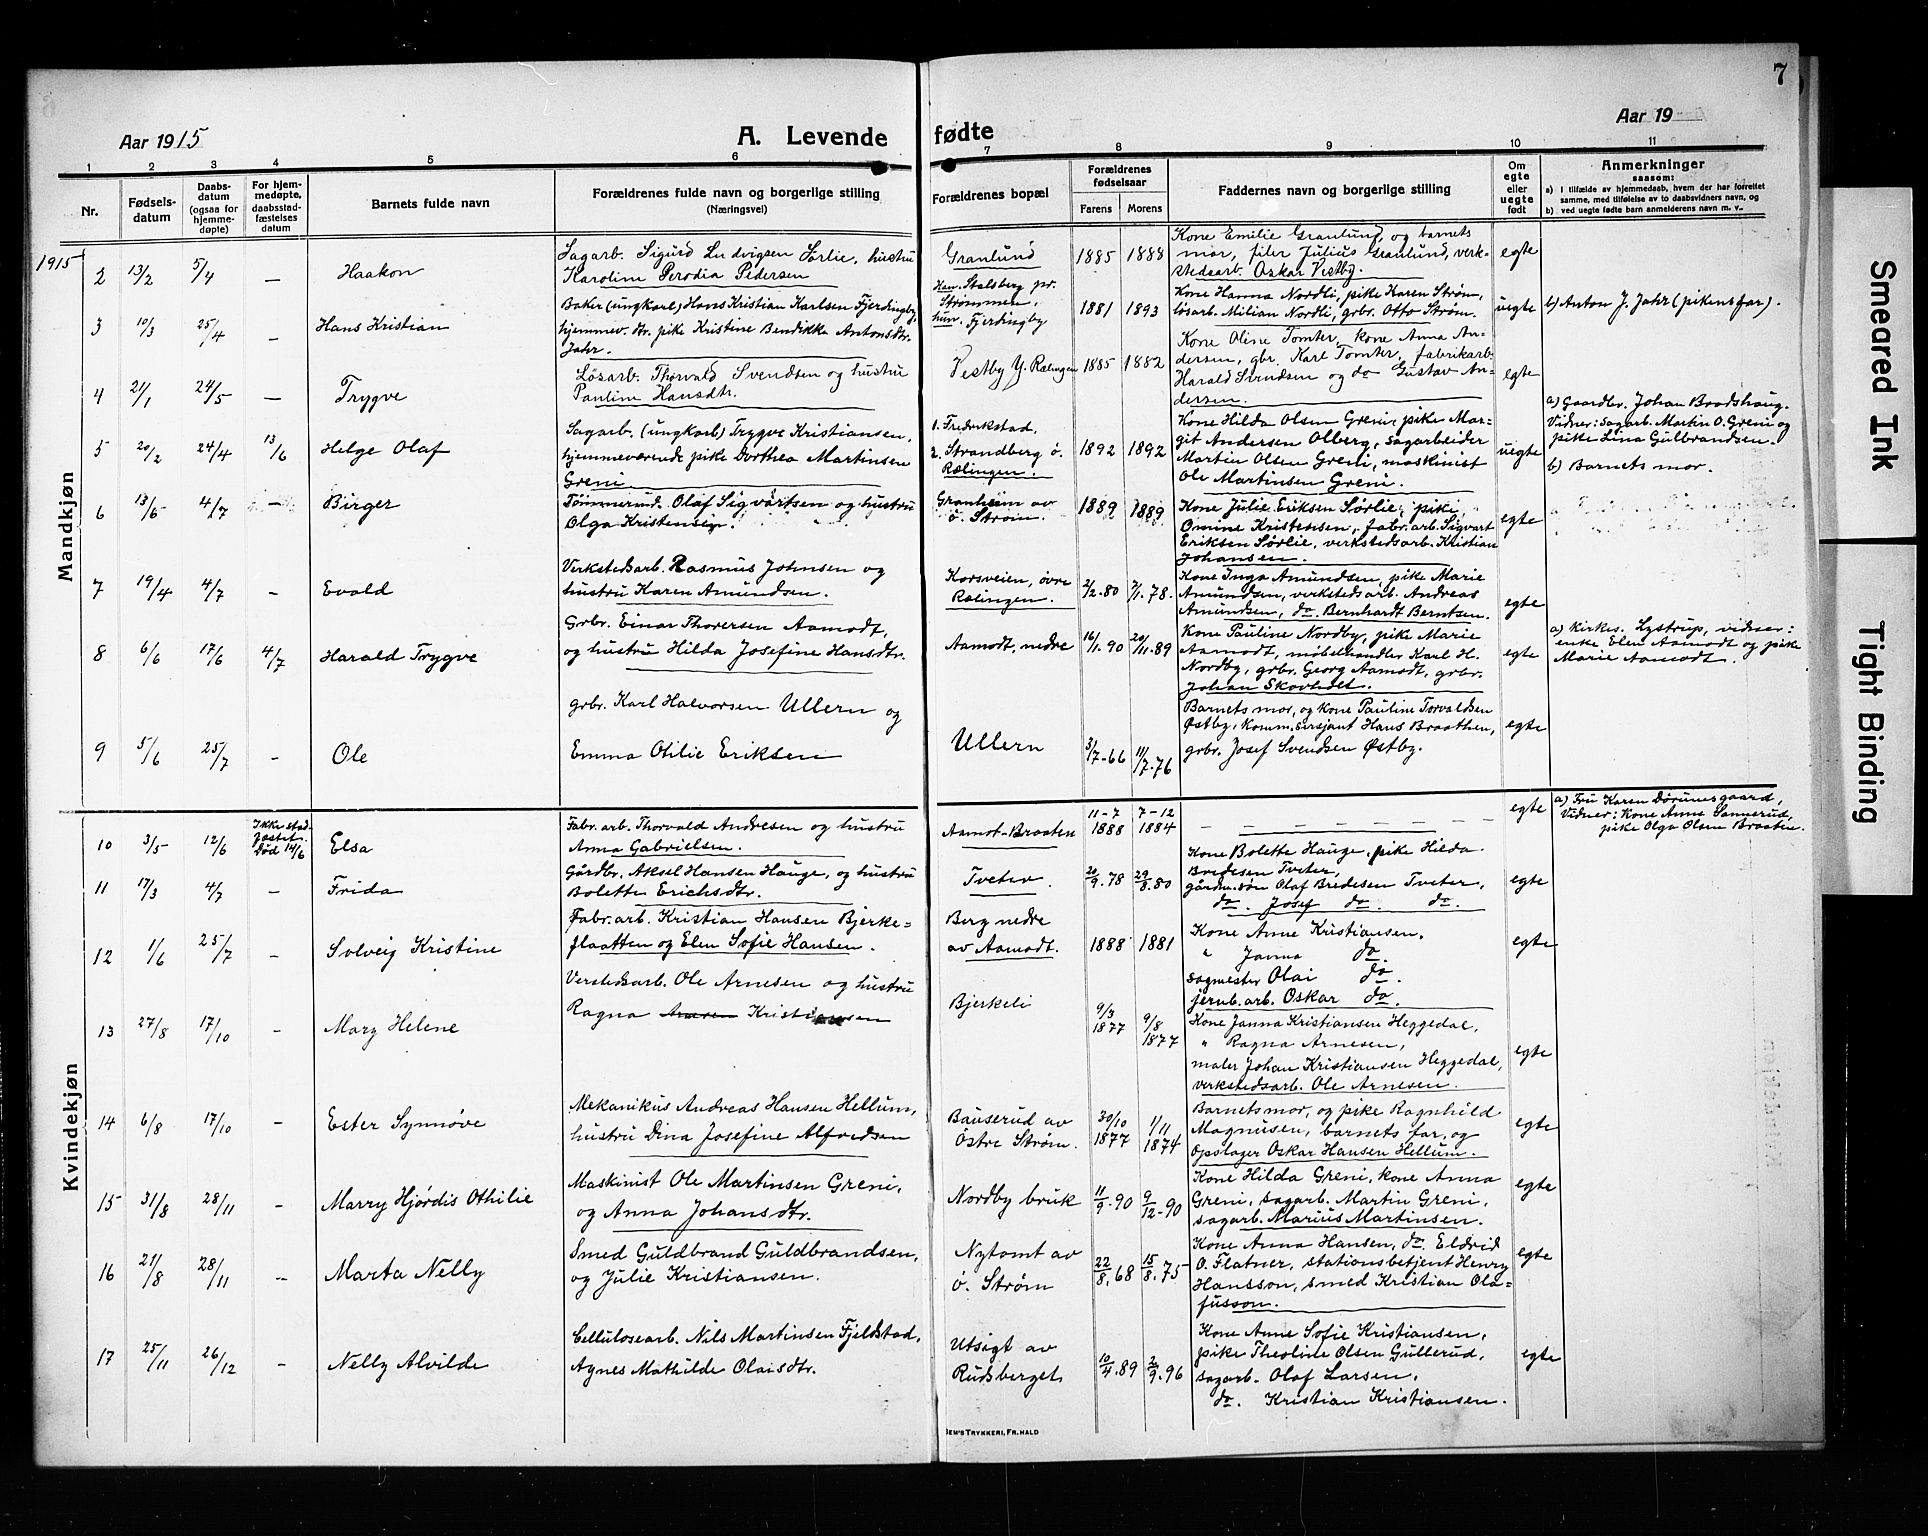 7
Aar 1915
A. Levende fødte
Aar 19
1 2 3 4 5 6 7 8 9 10 11
Nr.
Fødsels-
datum
Daabs-
datum
(ogsaa for
hjemme-
døpte)
For hjem-
medøpte,
daabsstad-
fæstelses
datum
Barnets fulde navn
Forældrenes fulde navn og borgerlige stilling
(Næringsvei)
Forældrenes bopæl
Forældrenes
fødselsaar
Farens Morens
Faddernes navn og borgerlige stilling
Om
egte
eller
uegte
født
Anmerkninger
saasom:
a) I tilfælde av hjemmedaab, hvem der har forrettet
samme, med tilføielse av to daabsvidners navn, og
b) ved uegte fødte barn anmelderens navn m. v..
Mandkjøn
1915
2 13/2 5/4 — Haakon
Sagarb. Sigurd Ludvigsen Sørlie, hustru
Karoline Perodia Pedersen
Granlund 1885 1888
Kone Emilie Granlund, og barnets
mor, filer Julius Granlund, verk-
stedsarb. Oskar Vestby.
egte
3 10/3 25/4 — Hans Kristian
Baker (ungkarl) Hans Kristian Karlsen Fjerdingby,
hjemmev. dtr. pike Kristine Bendikke Antonsdtr.
Jahr.
Han. Stalsberg pr.
Strømmen,
hun. Fjerdingby
1881 1893
Kone Hanna Nordli, pike Karen Strøm,
løsarb. Milian Nordli, grbr. Otto Strøm.
uegte
b) Anton J. Jahr (pikens far).
4 21/1 24/5 — Trygve
Løsarb. Thorvald Svendsen og hustru
Pauline Hansdtr.
Vestby Y. Rælingen 1885 1882
Kone Oline Tomter, kone Anna An-
dersen, gbr. Karl Tomter, fabrikarb.
Harald Svendsen og do Gustav An-
dersen.
egte
5 20/2 24/4 13/6 Helge Olaf
Sagarb. (ungkarl) Trygve Kristiansen,
hjemmeværende pike Dorthea Martinsen
Greni.
1. Fredrikstad.
2. Strandberg ö.
Rælingen.
1892 1892
Kone Hilda Olsen Greni, pike Mar-
git Andersen Olberg, sagarbeider
Martin Olsen Greni, maskinist
Ole Martinsen Greni.
uegte
a) Gaardbr. Johan Brodshaug.
Vidner: Sagarb. Martin O. Greni og
pike Lina Gulbrandsen.
b) Barnets mor.
6 13/5 4/7 — Birger
Tömmerund. Olaf Sigvartsen og hustru
Olga Kristensen.
Granheim av
ö. Strøm.
1889 1889
Kone Julie Eriksen Sørlie, pike
Omine Kristensen, fabr.arb. Sigvart
Eriksen Sørlie, verkstedsarb. Kristian
Johansen.
egte
7 19/4 4/7 — Evald
Verkstedsarb. Rasmus Johnsen og
hustru Karen Amundsen.
Korsveien, övre
Rælingen.
2/2.80 7/1.78.
Kone Inga Amundsen, pike Marie
Amundsen, verkstedsarb. Andreas
Amundsen, do. Bernhardt Berntsen.
egte
8 6/6 17/6 4/7 Harald Trygve
Grbr. Einar Thoresen Aamodt,
og hustru Hilda Josefine Hansdtr.
Aamodt, nedre
16/1.90 20/11.89
Kone Pauline Nordby, pike Marie
Aamodt, møbelhandler Karl H.
Nordby, grbr. Georg Aamodt, grbr.
Johan Skovholt.
egte
a) Kirkes. Lystrup, vidner:
enke Elen Aamodt og pike
Marie Aamodt.
9 5/6 25/7 — Ole
grbr. Karl Halvorsen Ullern og
Emma Otilie Eriksen
Ullern
3/7-66 11/7.76
Barnets mor, og kone Pauline Torvaldsen
Østby, komm.sersjant Hans Braathen,
grbr. Josef Svendsen Østby.
egte
Kvindekjøn
10 3/5 12/6
Ikke stad-
fæstet.
Død 14/6
Elsa
Fabr.arb. Thorvald Andresen og hustru
Anna Gabrielsen.
Aamot-Braaten
11-7 7-12
1888 1884
— — — — — — —
egte
a) Fru Karen Dørumsgaard,
Vidner: Kone Anna Sannerud,
pike Olga Olsen Braaten.
11 17/3 4/7 — Frida
Gårdbr. Aksel Hansen Hauge, og hustru
Bolette Erichsdtr.
Tveter.
20/9.78 29/8.80
Kone Bolette Hauge, pike Hilda
Bredesen Tveter,
gårdm.søn Olaf Bredesen Tveter,
do. Josef do. do.
egte
12 1/6 25/7 — Solveig Kristine
Fabr.arb. Kristian Hansen Bjerke=
flaatten og Elen Sofie Hansen.
Berg nedre
av Aamodt.
1888 1881
Kone Anne Kristiansen,
" Janna do.
sagmester Olai do.
jernb.arb. Oskar do.
egte
13 27/8 17/10 — Mary Helene
Verstedsarb. Ole Arnesen og hustru
Ragna Kristiansen
Bjerkeli
9/3
1877
9/8
1877
Kone Janna Kristiansen Heggedal,
" Ragna Arnesen,
maler Johan Kristiansen Heggedal,
verkstedsarb. Ole Arnesen.
egte
14 6/8 17/10 — Ester Synnøve
Mekanikus Andreas Hansen Hellum,
hustru Dina Josefine Alfredsen
Bauserud av
Östre Strøm.
30/10
1877
1/11
1874
Barnets mor, og pike Ragnhild
Magnusen, barnets far, og
opslager Oskar Hansen Hellum.
egte
15 31/8 28/11 — Marry Hjørdis Othilie
Maskinist Ole Martinsen Greni,
og Anna Johansdtr.
Nordby bruk
11/9.90 9/12-90
Kone Hilda Greni, kone Anna
Greni, sagarb. Martin Greni,
sagarb. Marius Martinsen.
egte
16 21/8 28/11 — Marta Nelly
Smed Guldbrand Guldbrandsen,
og Julie Kristiansen.
Nytomt av
ö. Strøm
22/8.68 15/8.75
Kone Anna Hansen, do. Eldrid
O. Flatner, stationsbetjent Henry
Hansson, smed Kristian Ola=
fusson.
egte
17 25/11 26/12 — Nelly Alvilde
Cellulosearb. Nils Martinsen Fjeldstad,
Agnes Mathilde Olaisdtr.
Utsigt av
Rudsberget
10/4.89 2/9.96
Kone Anne Sofie Kristiansen,
pike Theoline Olsen Gullerud,
sagarb. Olaf Larsen,
do. Kristian Kristiansen.
egte
SEM'S TRYKKERI, FR. HALD
Smeared Ink
Tight Binding